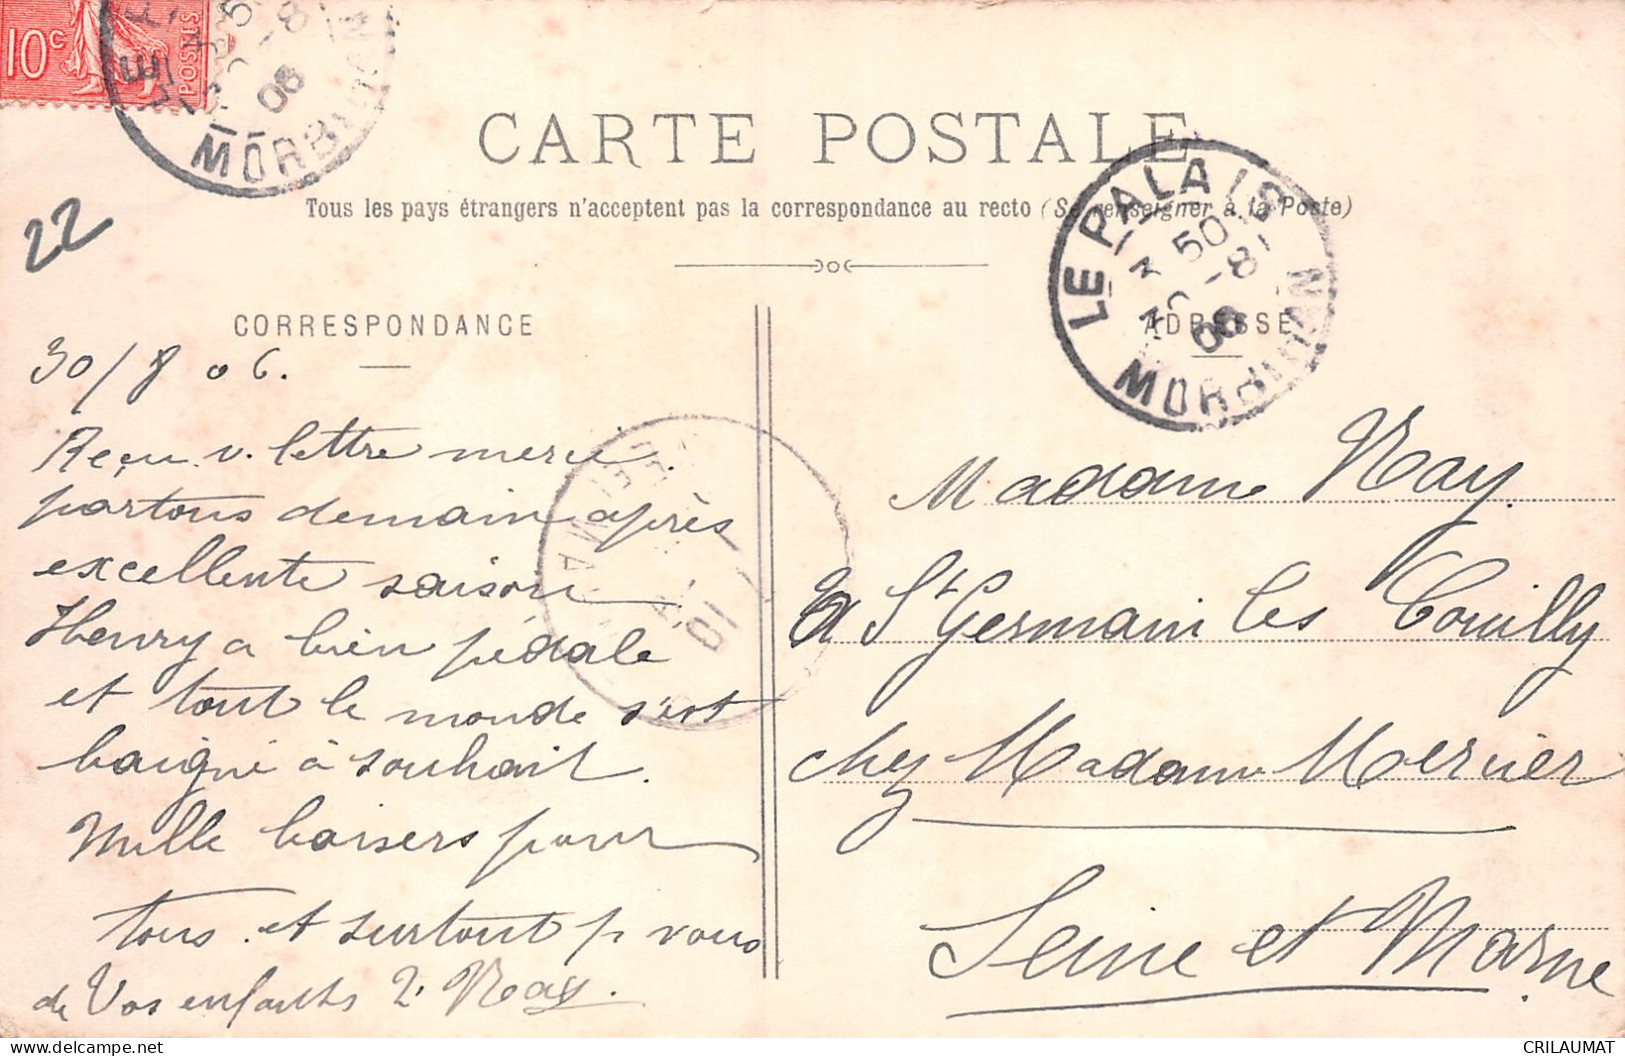 10c
POSTES
MORBIHAN
06
CARTE POSTALE
Tous les pays étrangers n'acceptent pas la correspondance au recto (Se renseigner à la Poste)
22
LE PALAIS
50
-8
06
MORBIHAN
CORRESPONDANCE
ADRESSE
30/8 06.
Reçu v. lettre merci.
partons demain après
excellente saison
Henry a bien pédalé
et tout le monde s'est
baigné à souhait.
Mille baisers pour
tous et surtout p vous
de Vos enfants
Madame Ray
A St Germain les Couilly
chez Madame Mercier
Seine et Marne
CRILAUMAT